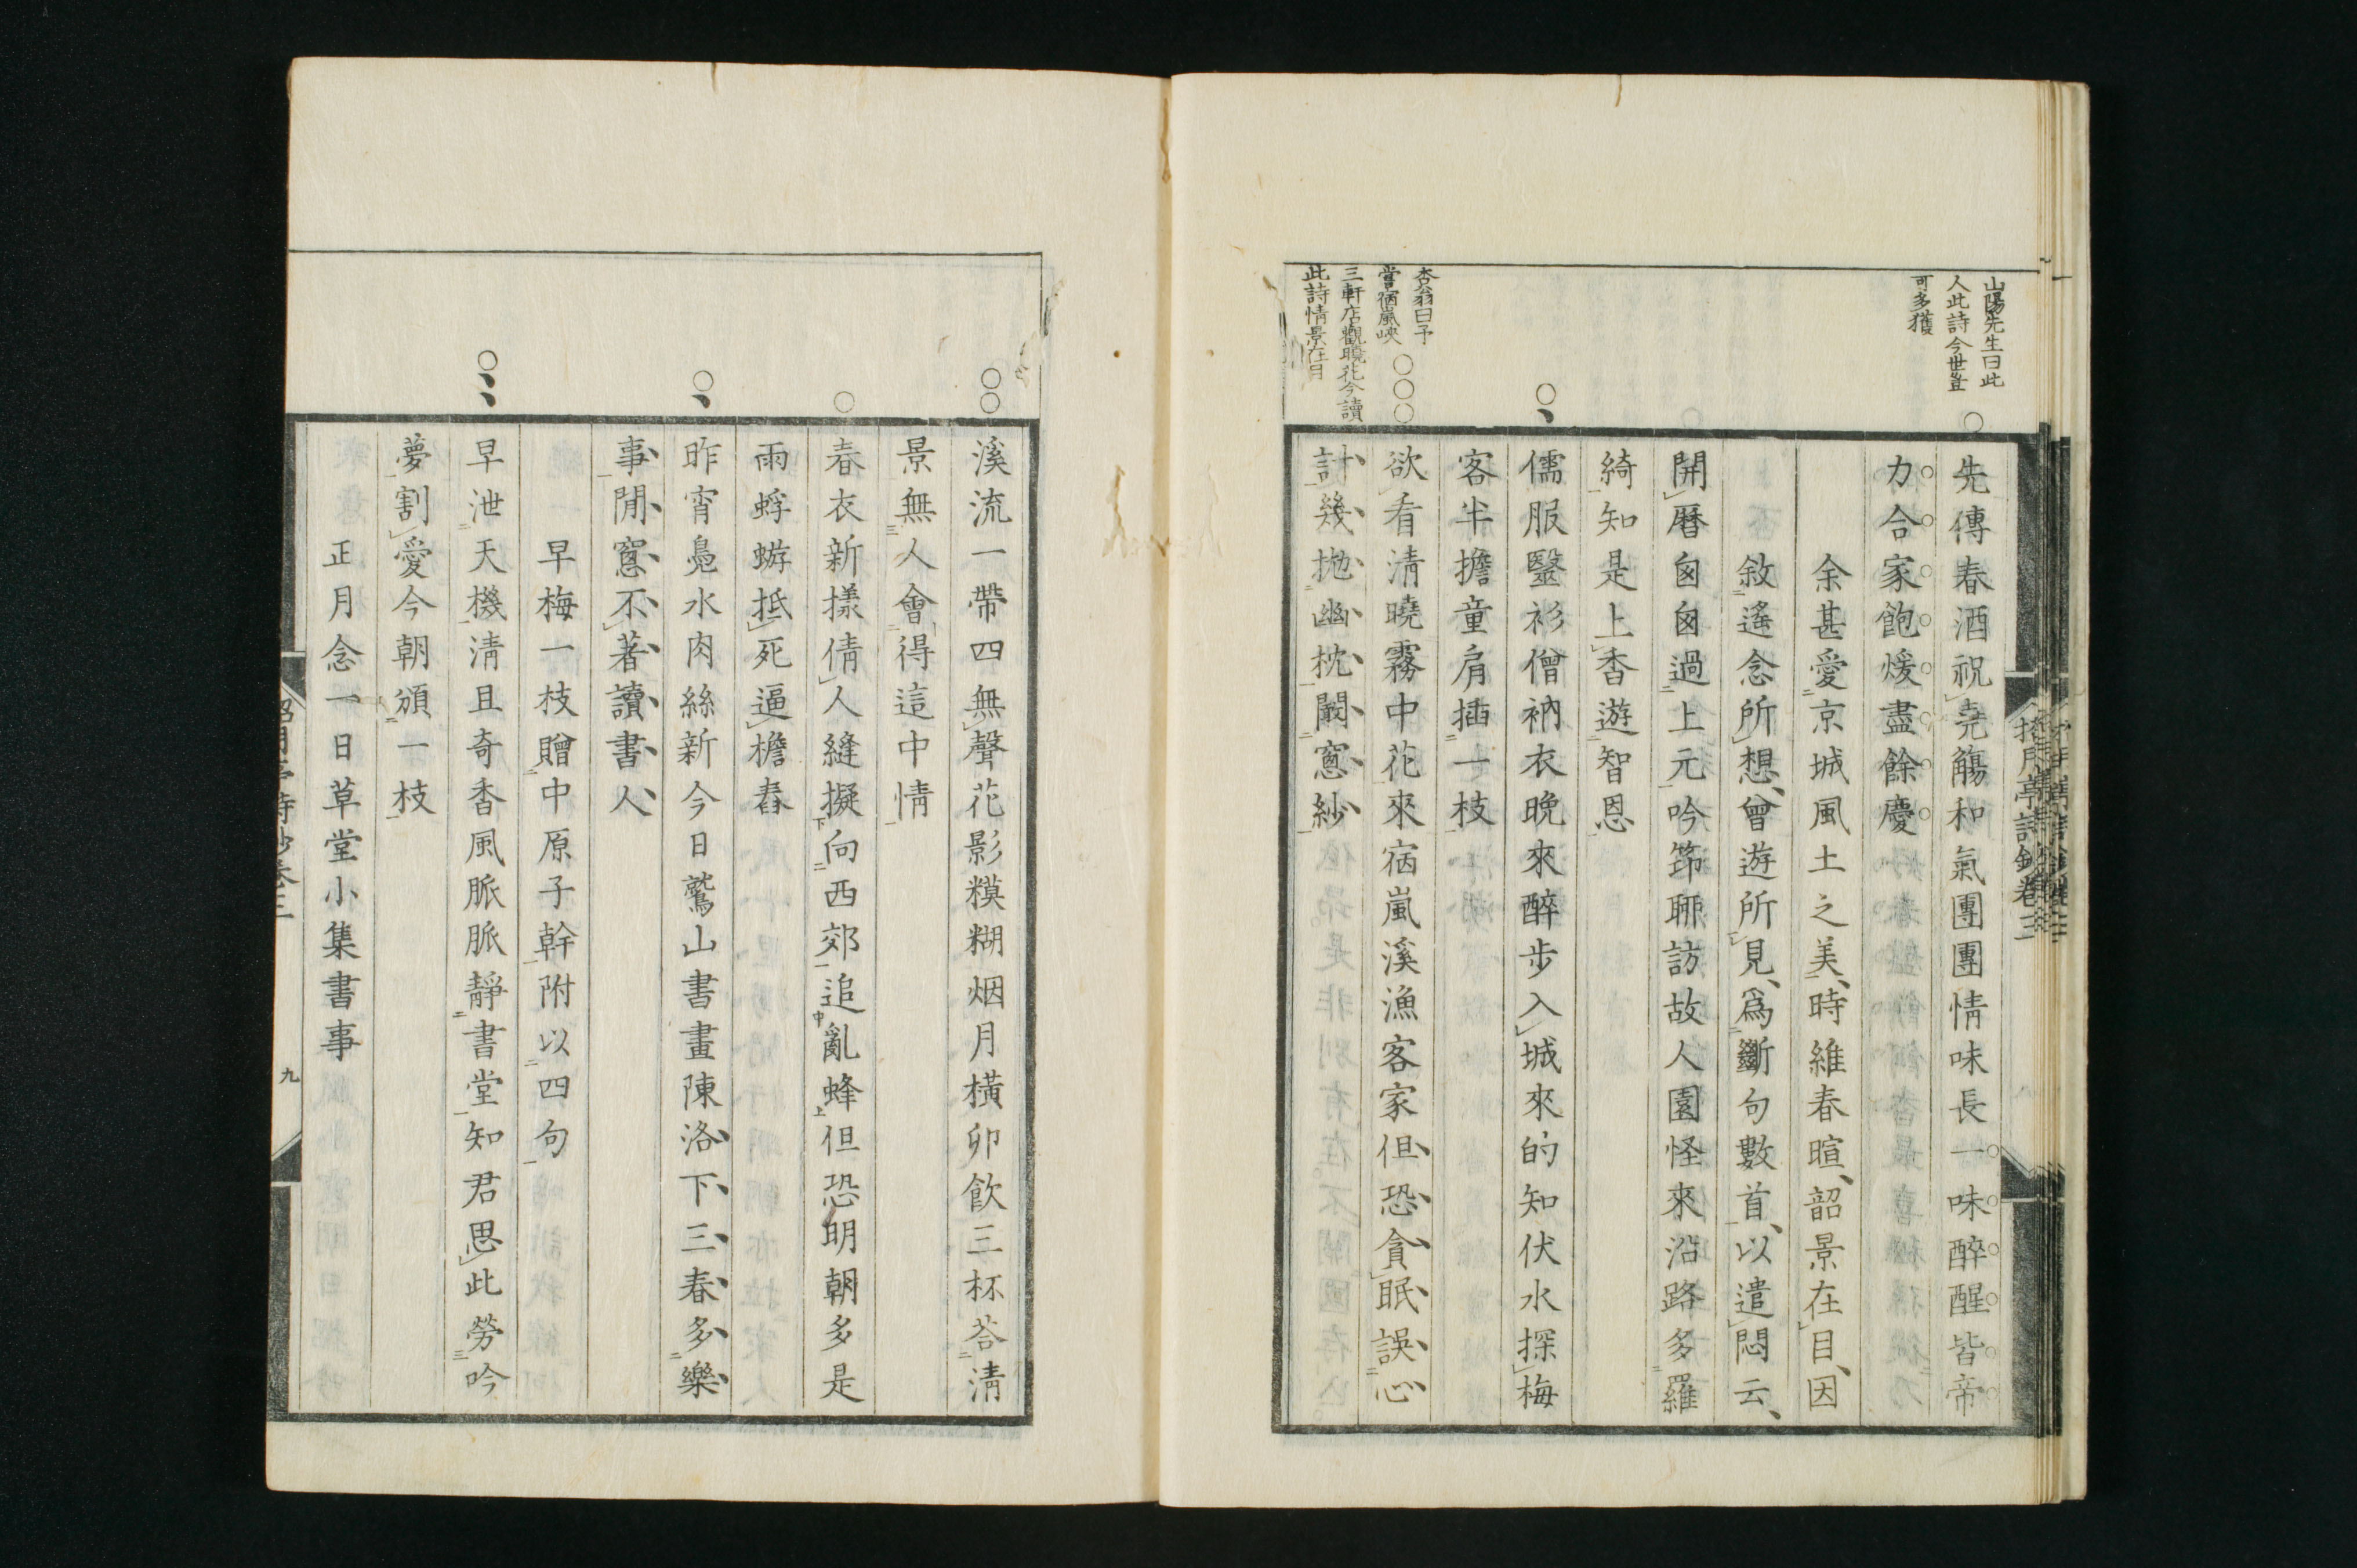 山陽先生曰此
人此詩今世豈
可多獲
先傳春酒祝堯觴和氣團團情味長一味醉醒皆帝
力合家飽煖盡餘慶
余甚愛京城風土之美時維春暄韶景在目因
敘遙念所想曾遊所見爲斷句數首以遣悶云
開曆匆匆過上元吟筇聊訪故人園怪來沿路多羅
綺知是上香遊智恩
儒服毉衫僧衲衣晚來醉步入城來的知伏水探梅
客半擔童肩插一枝
杏翁曰予
嘗宿嵐峽
三軒店觀曉花今讀
此詩情景在目
欲看清曉霧中花來宿嵐溪漁客家但恐貪眠誤心
計幾拋幽枕闞窻紗
溪流一帶四無聲花影糢糊烟月橫卯飮三杯荅清
景無人會得這中情
春衣新㨾倩人縫擬向西郊追亂蜂但恐明朝多是
雨蜉蝣抵死逼檐舂
昨宵鳧水肉絲新今日鷲山書畫陳洛下三春多樂
事閒窻不著讀書人
早梅一枝贈中原子幹附以四句
早泄天機清且奇香風脈脈靜書堂知君思此勞吟
夢割愛今朝頒一枝
正月念一日草堂小集書事
九